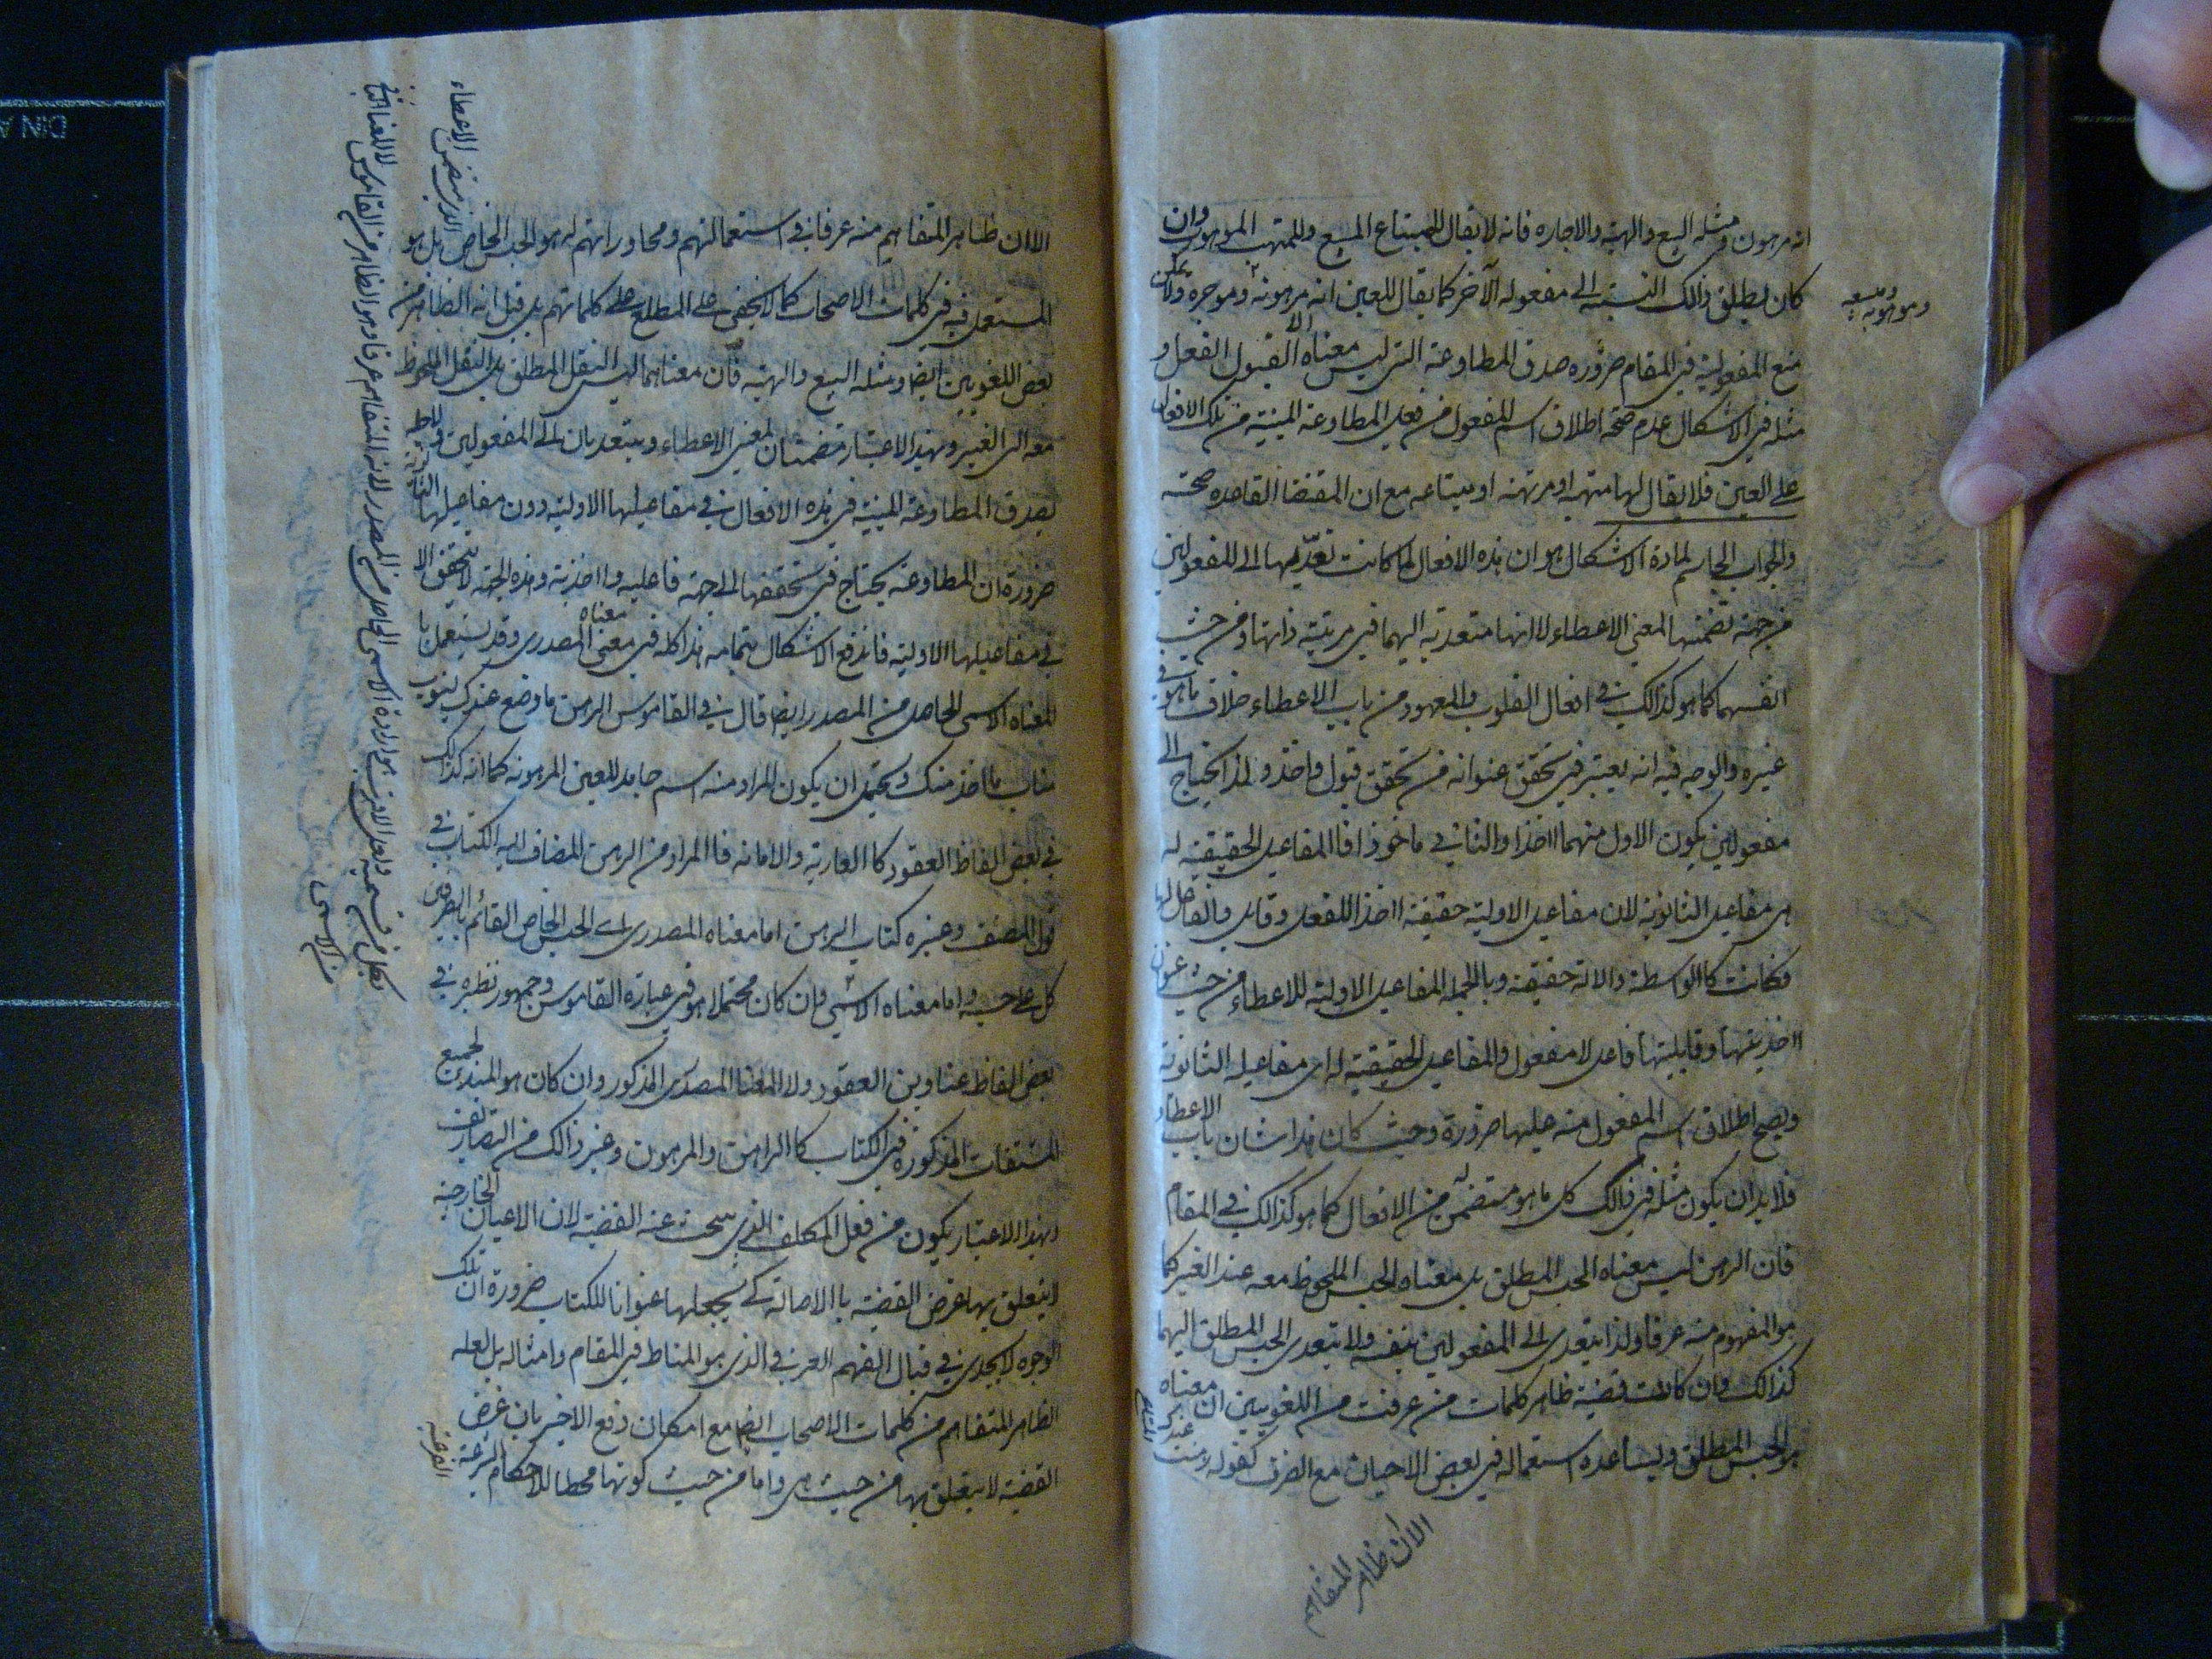 انه مرهون ومثله البيع والهبة والاجاره فانه لا يقال للمبتاع المبيع وللمتهب الموهوب وان
كان يطلق ذالك النسبة الى مفعوله الآخر كما يقال للعين انه مرهونه وموجرة ولا يمكن
ومبيعه وموهوبه
منع المفعولية في المقام ضرورة صدق المطاوعة التى ليس معناه الا القبول الفعل و
مثله في الاشكال عدم صحة اطلاق اسم المفعول من فعل المطاوعة المبنية من تلك الافعال
على العين فلا يقال لها متهبه او مرتهنه او مبتاعه مع ان المقتضا القاعده صحته
والجواب الحاسم لمادة الاشكال هو ان هذه الافعال لما كانت تعديها الى المفعولين
من جهة تضمنها لمعنى الاعطاء لا انها متعدية اليهما في مرتبة ذاتها ومن حيث
انفسهما كما هو كذالك في افعال القلوب والمعهود من باب الاعطاء خلاف ما هو في
غيره والوجه فيه انه يعتبر في تحقق عنوانه من تحقق قبول واخذ ولذا يحتاج الى
مفعولين يكون الاول منهما ااخذا والثاني ماخوذا فالمفاعيل الحقيقية له
هى مفاعيل الثانوية لان مفاعيل الاولية حقيقة ااخذ للفعل وقابل
فكانت كالوسطة والالة حقيقة وبالجمله المفاعيل الاولية للاعطاء من حيث عنوان
ااخذيتها وقابليتها فاعل لا مفعول والمفاعيل الحقيقية له هى مفاعيله الثانوية
ويصح اطلاق اسم المفعول منه عليها ضرورة وحيث كان هذا شان باب الاعطاء
فلا بد ان يكون مثله في ذالك كل ما هو متضمن له من الافعال كما هو كذالك في المقام
فان الرهن ليس معناه الحبس المطلق بل معناه الحبس الملحوظ معه عند الغير كما
هو المفهوم منه عرفا ولذا يتعدى الى المفعولين بنفسه ولا يتعدى الحبس المطلق اليهما
كذالك وان كانت قضية ظاهر كلمات من عرفت من اللغويين ان معناه
هو الحبس المطلق ويساعده استعماله في بعض الاحيان مع الظرف كقوله رهنت عند
الا ان ظاهر المتفاهم
الا ان ظاهر المتفاهم منه عرفا في استعمالاتهم ومحاوراتهم له هو الحبس الخاص بل هو
المستعمل فيه في كلمات الاصحاب كما لا يخفى على المطلع على كلماتهم بل قيل انه الظاهر من
بعض اللغويين ايضا ومثله البيع والهبة فان معناهما ليس النقل المطلق بل النقل الملحوظ
معه الى الغير وبهذا الاعتبار متضمنان لمعنى الاعطاء ويتعديان الى المفعولين
يصدق المطاوعة المبنية في هذه الافعال في مفاعيلها الاولية دون مفاعيلها الثانوية
ضرورة ان المطاوعة يحتاج في تحققها الى جهة فاعليه وااخذية وهذه الجهة لا يتحقق الا
في مفاعيلها الاولية فاندفع الاشكال بتمامه هذا كله في معنى معناه المصدرى وقد يستعمل با
لمعناه الاسمى الحاصل من المصدر ايضا قال في القاموس الرهن ما وضع عندك لينوب
مناب ما اخذ منك ويحتمل ان يكون المراد منه اسم جامد للعين المرهونه كما انه كذالك
في بعض الفاظ العقود كاالعارية والامانه فالمراد من الرهن المضاف اليه الكتاب في
قول المصنف وغيره كتاب الرهن اما معناه المصدرى اى الحبس الخاص القائم بالطرفين
كل على حسبه واما معناه الاسمى وان كان محتملا هو في عبارة القاموس وجمهور نظره في
بعض الفاظ عناوين العقود ولا المعنا المصدرى المذكور وان كان هو المبدء لجميع
المشتقات المذكورة في الكتاب كاالراهن والمرهون وغير ذالك من التصاريف
وبهذا الاعتبار يكون من فعل المكلف الذى يبحث عنه الفقيه لان الاعيان الخارجيه
لا يتعلق بها غرض الفقيه باالاصالة كى يجعلها عنوانا للكتاب ضرورة ان تلك
الوجوه لا يجدى في قبال الفهم العرفي الذى هو المناط في المقام وامثاله بل لعله
الظاهر المتفاهم من كلمات الاصحاب ايضا مع امكان دفع الاخير بان غرض
الفقيه لا يتعلق بها من حيث هى واما من حيث كونها محطا للاحكام الشرعية الفرعية
الذى يتضمن الاعطاء